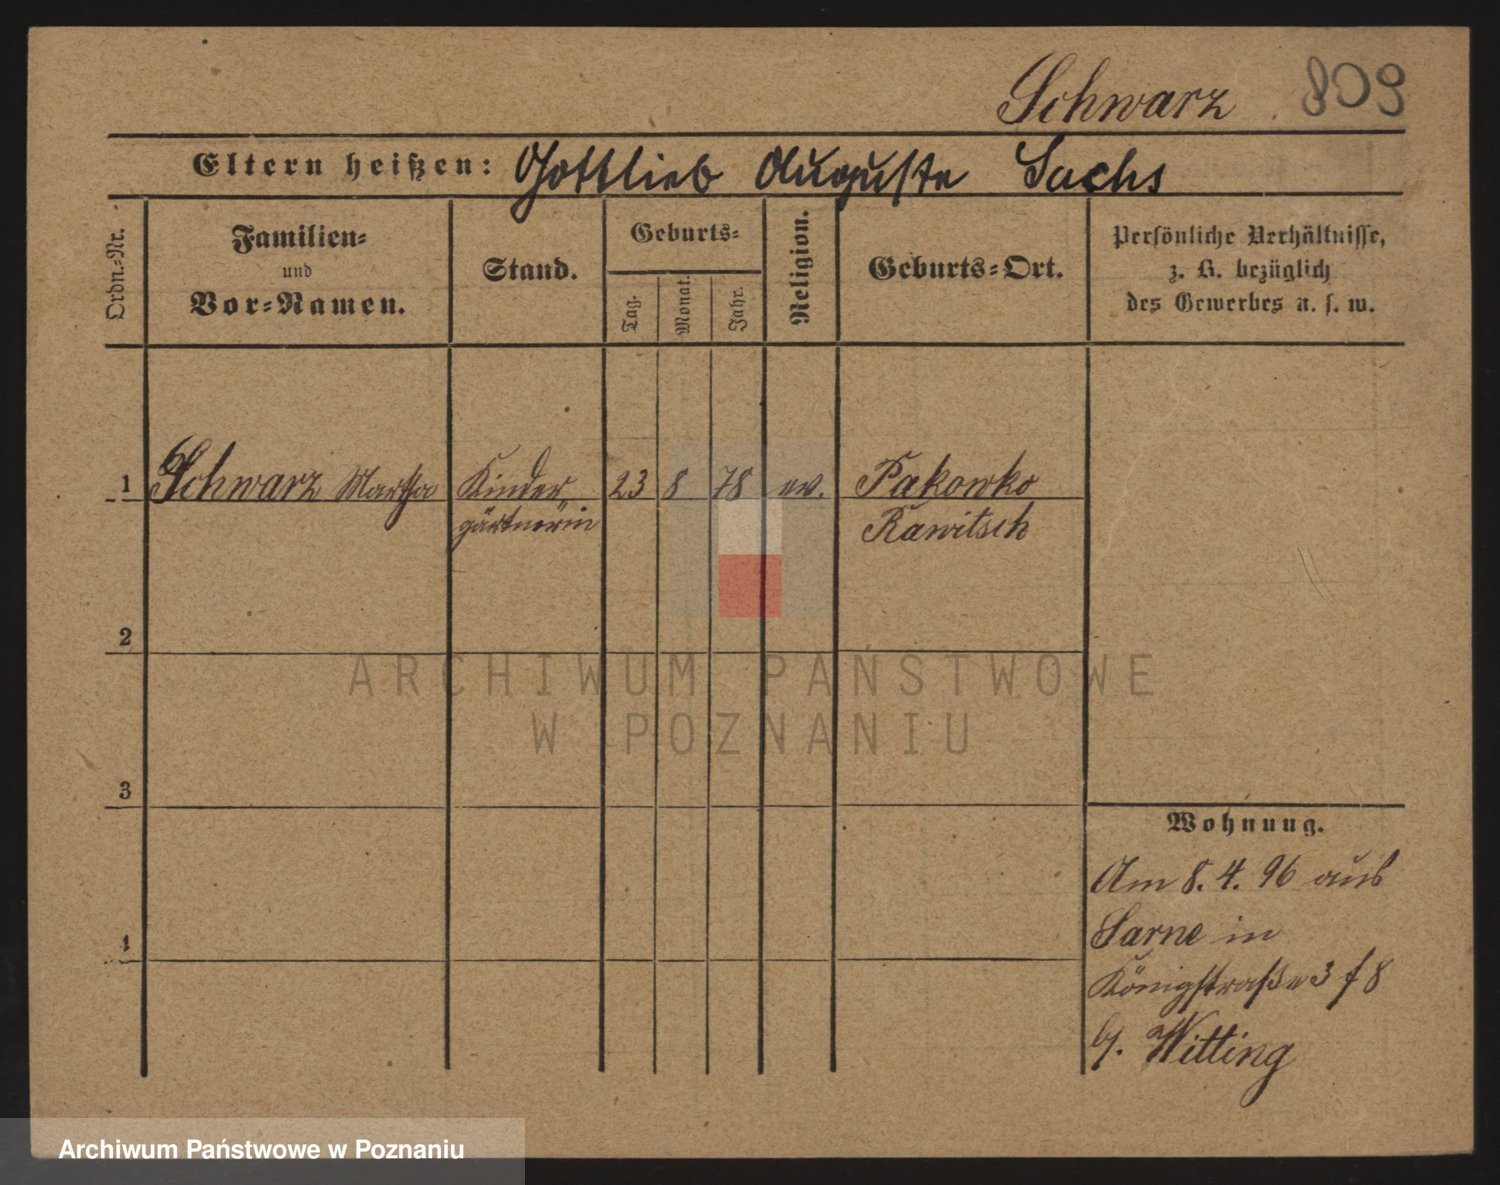 Schwarz 809
Eltern heißen: Gottlieb Auguste Sachs
Ordn.-Nr.
Familien-
und
Vor-Namen.
Stand.
Geburts-
Tag.
Monat.
Jahr.
Religion.
Geburts-Ort.
Persönliche Verhältnisse,
z. B. bezüglich
des Gewerbes u. s. w.
1 Schwarz Martha Kinder 23 8 78 ev. Pakowko
gärtnerin Rawitsch
2
ARCHIWUM PAŃSTWOWE
W POZNANIU
3
Wohnung.
Am 8. 4. 96 aus
Sarne in
4
Königstraße 3
Witting
Archiwum Państwowe w Poznaniu